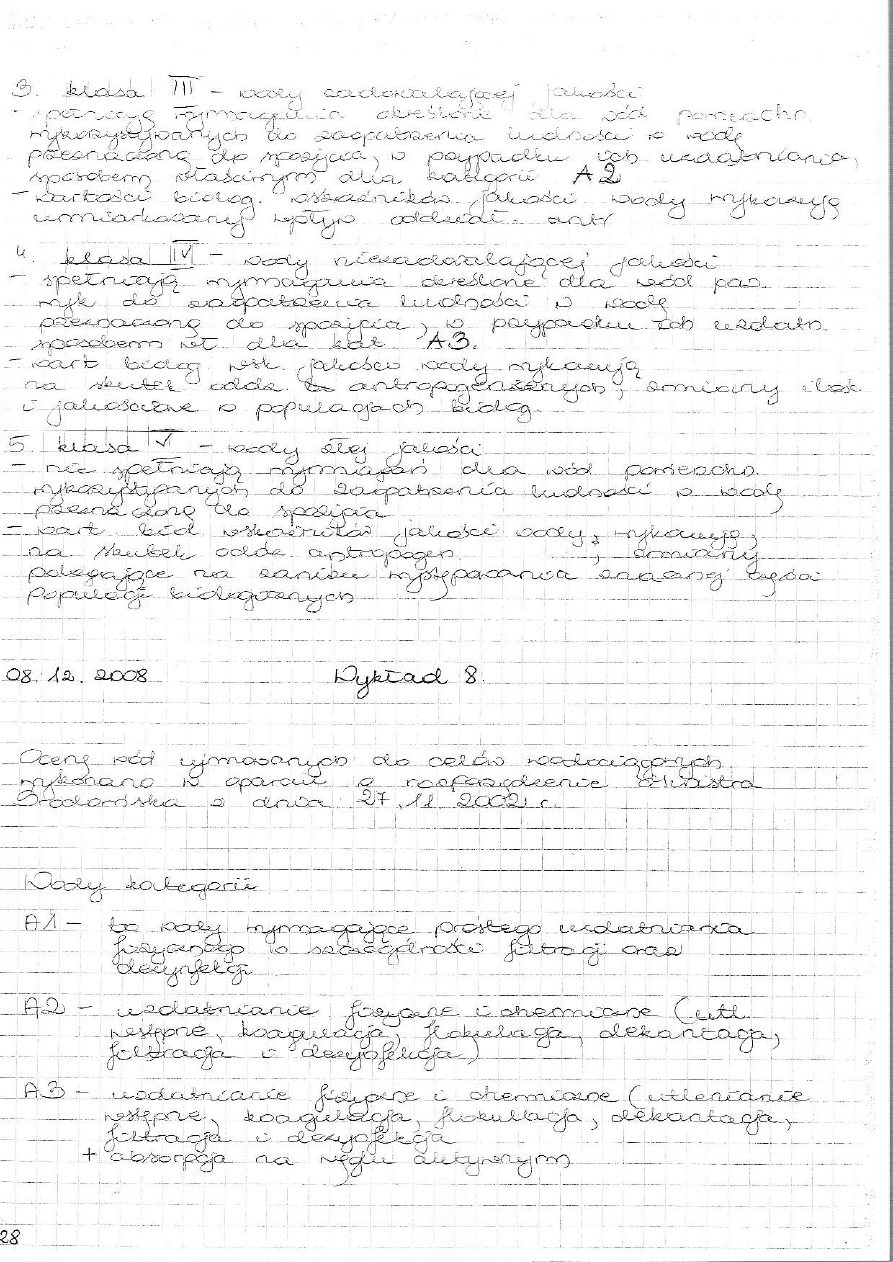 3. klasa III – wody zadowalającej jakości
- spełniają wymagania określone dla wód powierzchn.
wykorzystywanych do zaopatrzenia ludności w wodę
przeznaczoną do spożycia, w przypadku ich uzdatniania,
sposobem właściwym dla kategorii A2
- wartości biolog. wskaźników jakości wody wykazują
umiarkowany wpływ oddział. antr
4. klasa IV – wody niezadowalającej jakości
- spełniają wymagania określone dla wód pow.
wyk do zaopatrzenia ludności w wodę
przeznaczoną do spożycia, w przypadku ich uzdatn.
sposobem wł. dla kat A3.
- wart biolog wsk. jakości wody wykazują
na skutek oddz. antropogenicznych, zmiany ilość.
i jakościowe w populacjach biolog.
5. klasa V – wody złej jakości
- nie spełniają wymagań dla wód powierzchn.
wykorzystywanych do zaopatrzenia ludności w wodę
przeznaczoną do spożycia
- wart biol wskaźników jakości wody, wykazują,
na skutek oddz. antropogen. , zmiany
polegające na zaniku występowania znacznej części
populacji biologicznych
08.12.2008 Wykład 8.
Ocenę wód ujmowanych do celów wodociągowych
wykonano w oparciu o rozporządzenie Ministra
Środowiska z dnia 27.11.2002 r.
Wody kategorii
A1 – to wody wymagające prostego uzdatniania
fizycznego w szczególności filtracji oraz
dezynfekcji
A2 – uzdatnianie fizyczne i chemiczne (utl.
wstępne, koagulacja, flokulacja, dekantacja,
filtracja i dezynfekcja)
A3 – uzdatnianie fizyczne i chemiczne (utlenianie
wstępne, koagulacja, flokulacja, dekantacja,
filtracja i dezynfekcja
+ absorpcja na węglu aktywnym
28